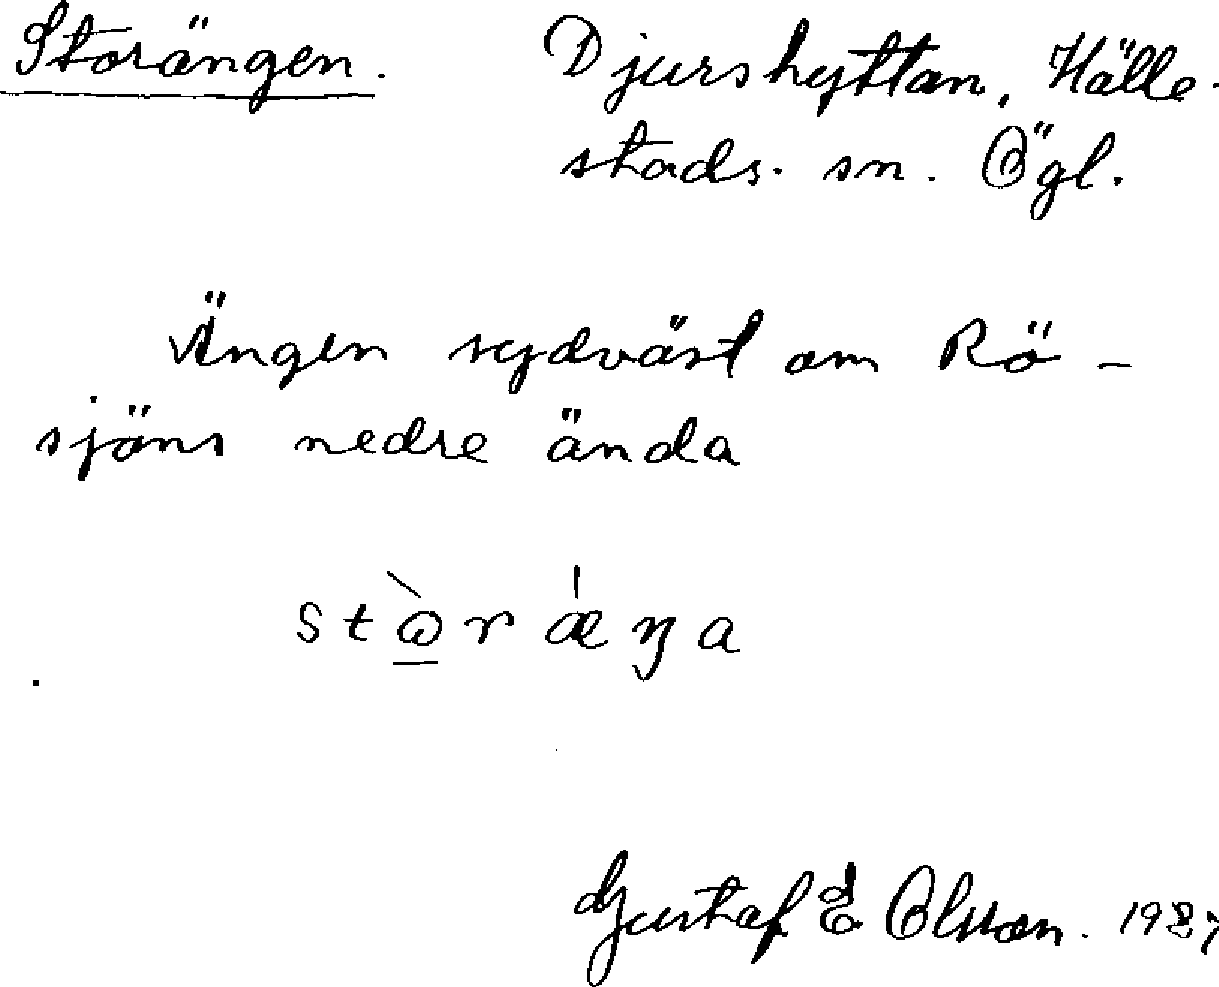 Storängen. Djurshyttan, Hälle-
stads. sn. Ögl.
Ängen sydväst om Rö-
sjöns nedre ända
stòrǽŋa
Gustaf E Olsson. 1927